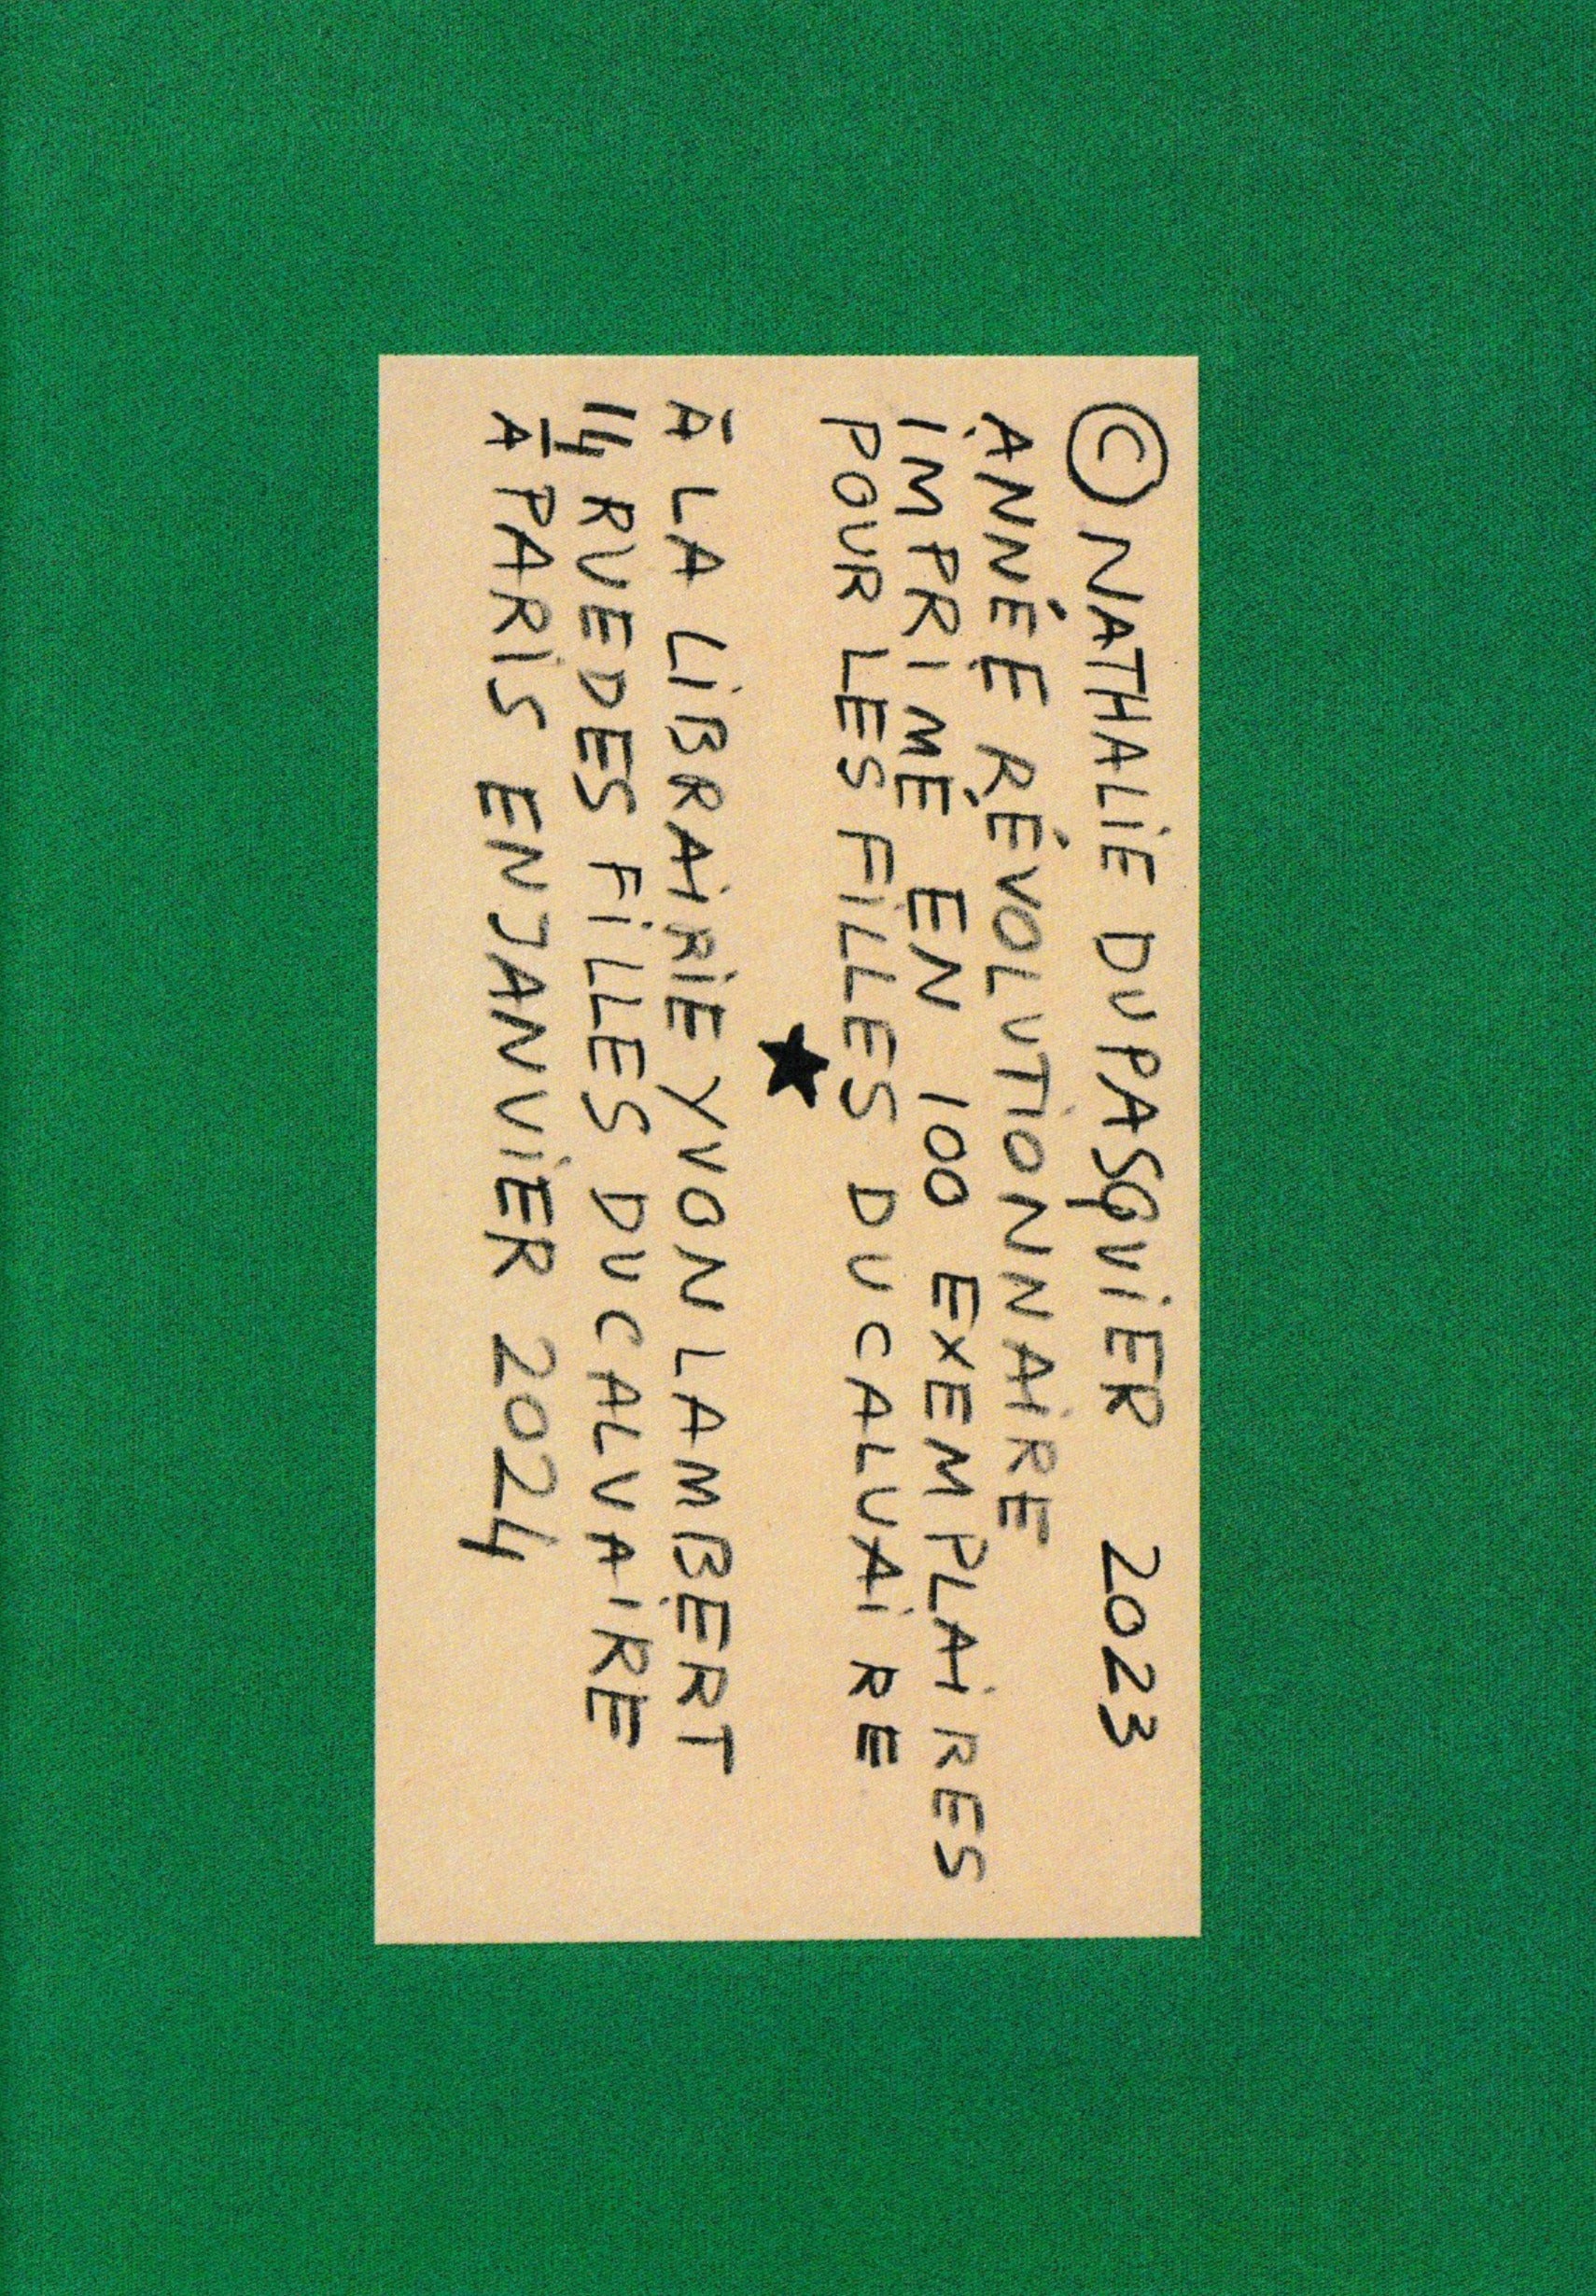 © NATHALIE DU PASQUIER 2023
ANNÉE RÉVOLUTIONNAIRE
IMPRIMÉ EN 100 EXEMPLAIRES
POUR LES FILLES DU CALVAIRE
★
À LA LIBRAIRIE YVON LAMBERT
14 RUE DES FILLES DU CALVAIRE
À PARIS EN JANVIER 2024